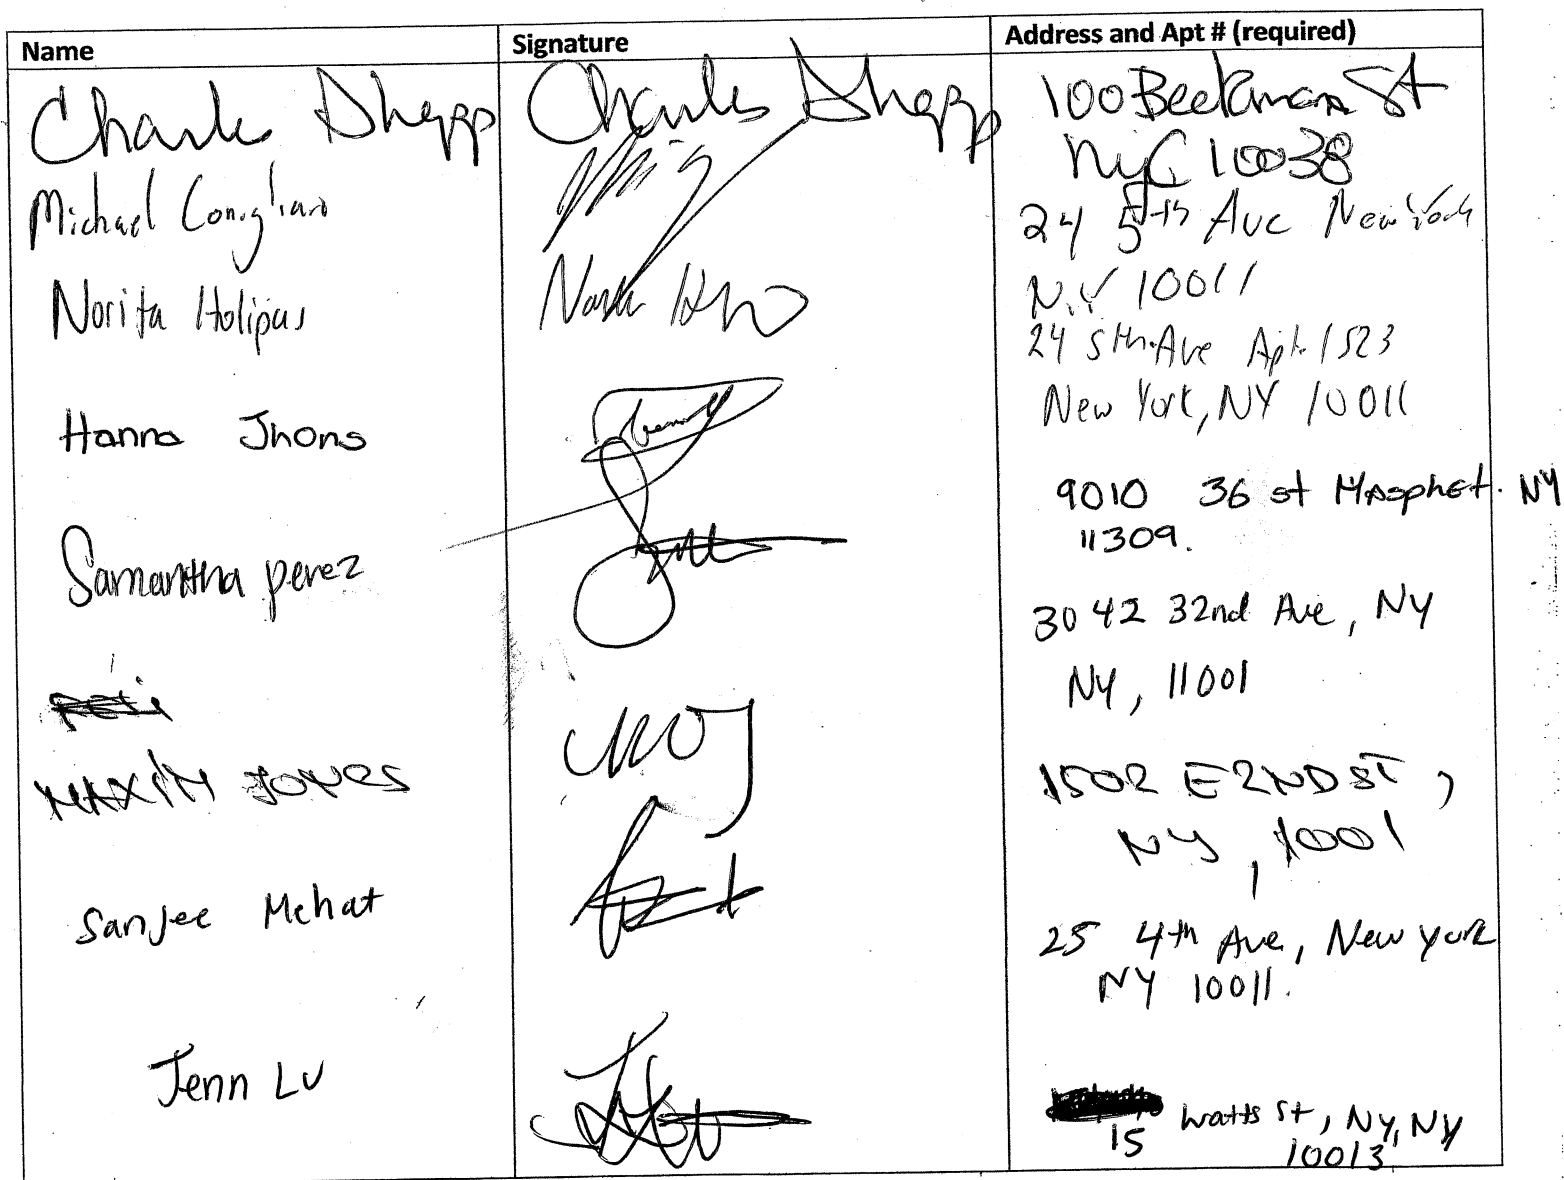 Name Signature Address and Apt # (required)
Charles Shepp Charles Shepp 100 Beekman St
NYC 10038
Michael Conigliaro 24 5th Ave New York
N.Y 10011
Norita Holipas 24 5th Ave Apt. 1523
New York, NY 10011
Hanna Jhons
9010 36 st MAsphet. NY
11309.
Samantha perez
3042 32nd Ave, NY
NY, 11001
MAXIM JONES 1502 E2ND ST,
NY, 10001
Sanjee Mehat 25 4th Ave, New York
NY 10011.
Jenn Lu
15 Watts St, NY, NY
10013